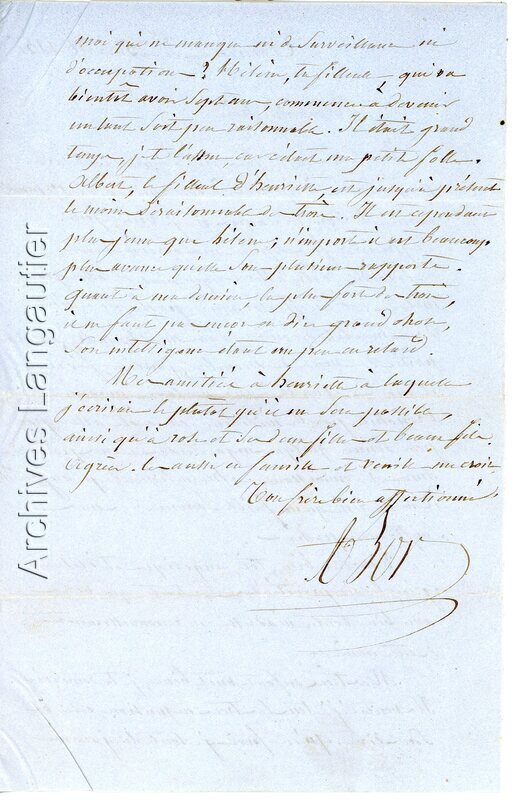 moi qui ne manque ni de surveillance ni
d'occupation ? hélène, ta filleule, qui va
bientôt avoir sept ans, commence à devenir
un tant soit peu raisonnable. Il était grand
temps, je t'assure car c'était une petite folle.
Albert, le filleul d'henriette, est jusqu'à présent
le moins déraisonnable des trois. Il est cependant
plus jeune que hélène ; n'importe il est beaucoup
plus avancé qu'elle sous plusieurs rapports.
quant à ma dernière, la plus forte des trois,
il ne faut pas encore en dire grand chose,
son intelligence étant un peu en retard.
Mes amitiés à henriette à laquelle
j'écrirai le plutôt qu'il me sera possible,
ainsi qu'à rose et sa deux filles et beau fils
Agrée les aussi en famille et veuille me croire
Ton frère bien affectionné
Archives Langautier